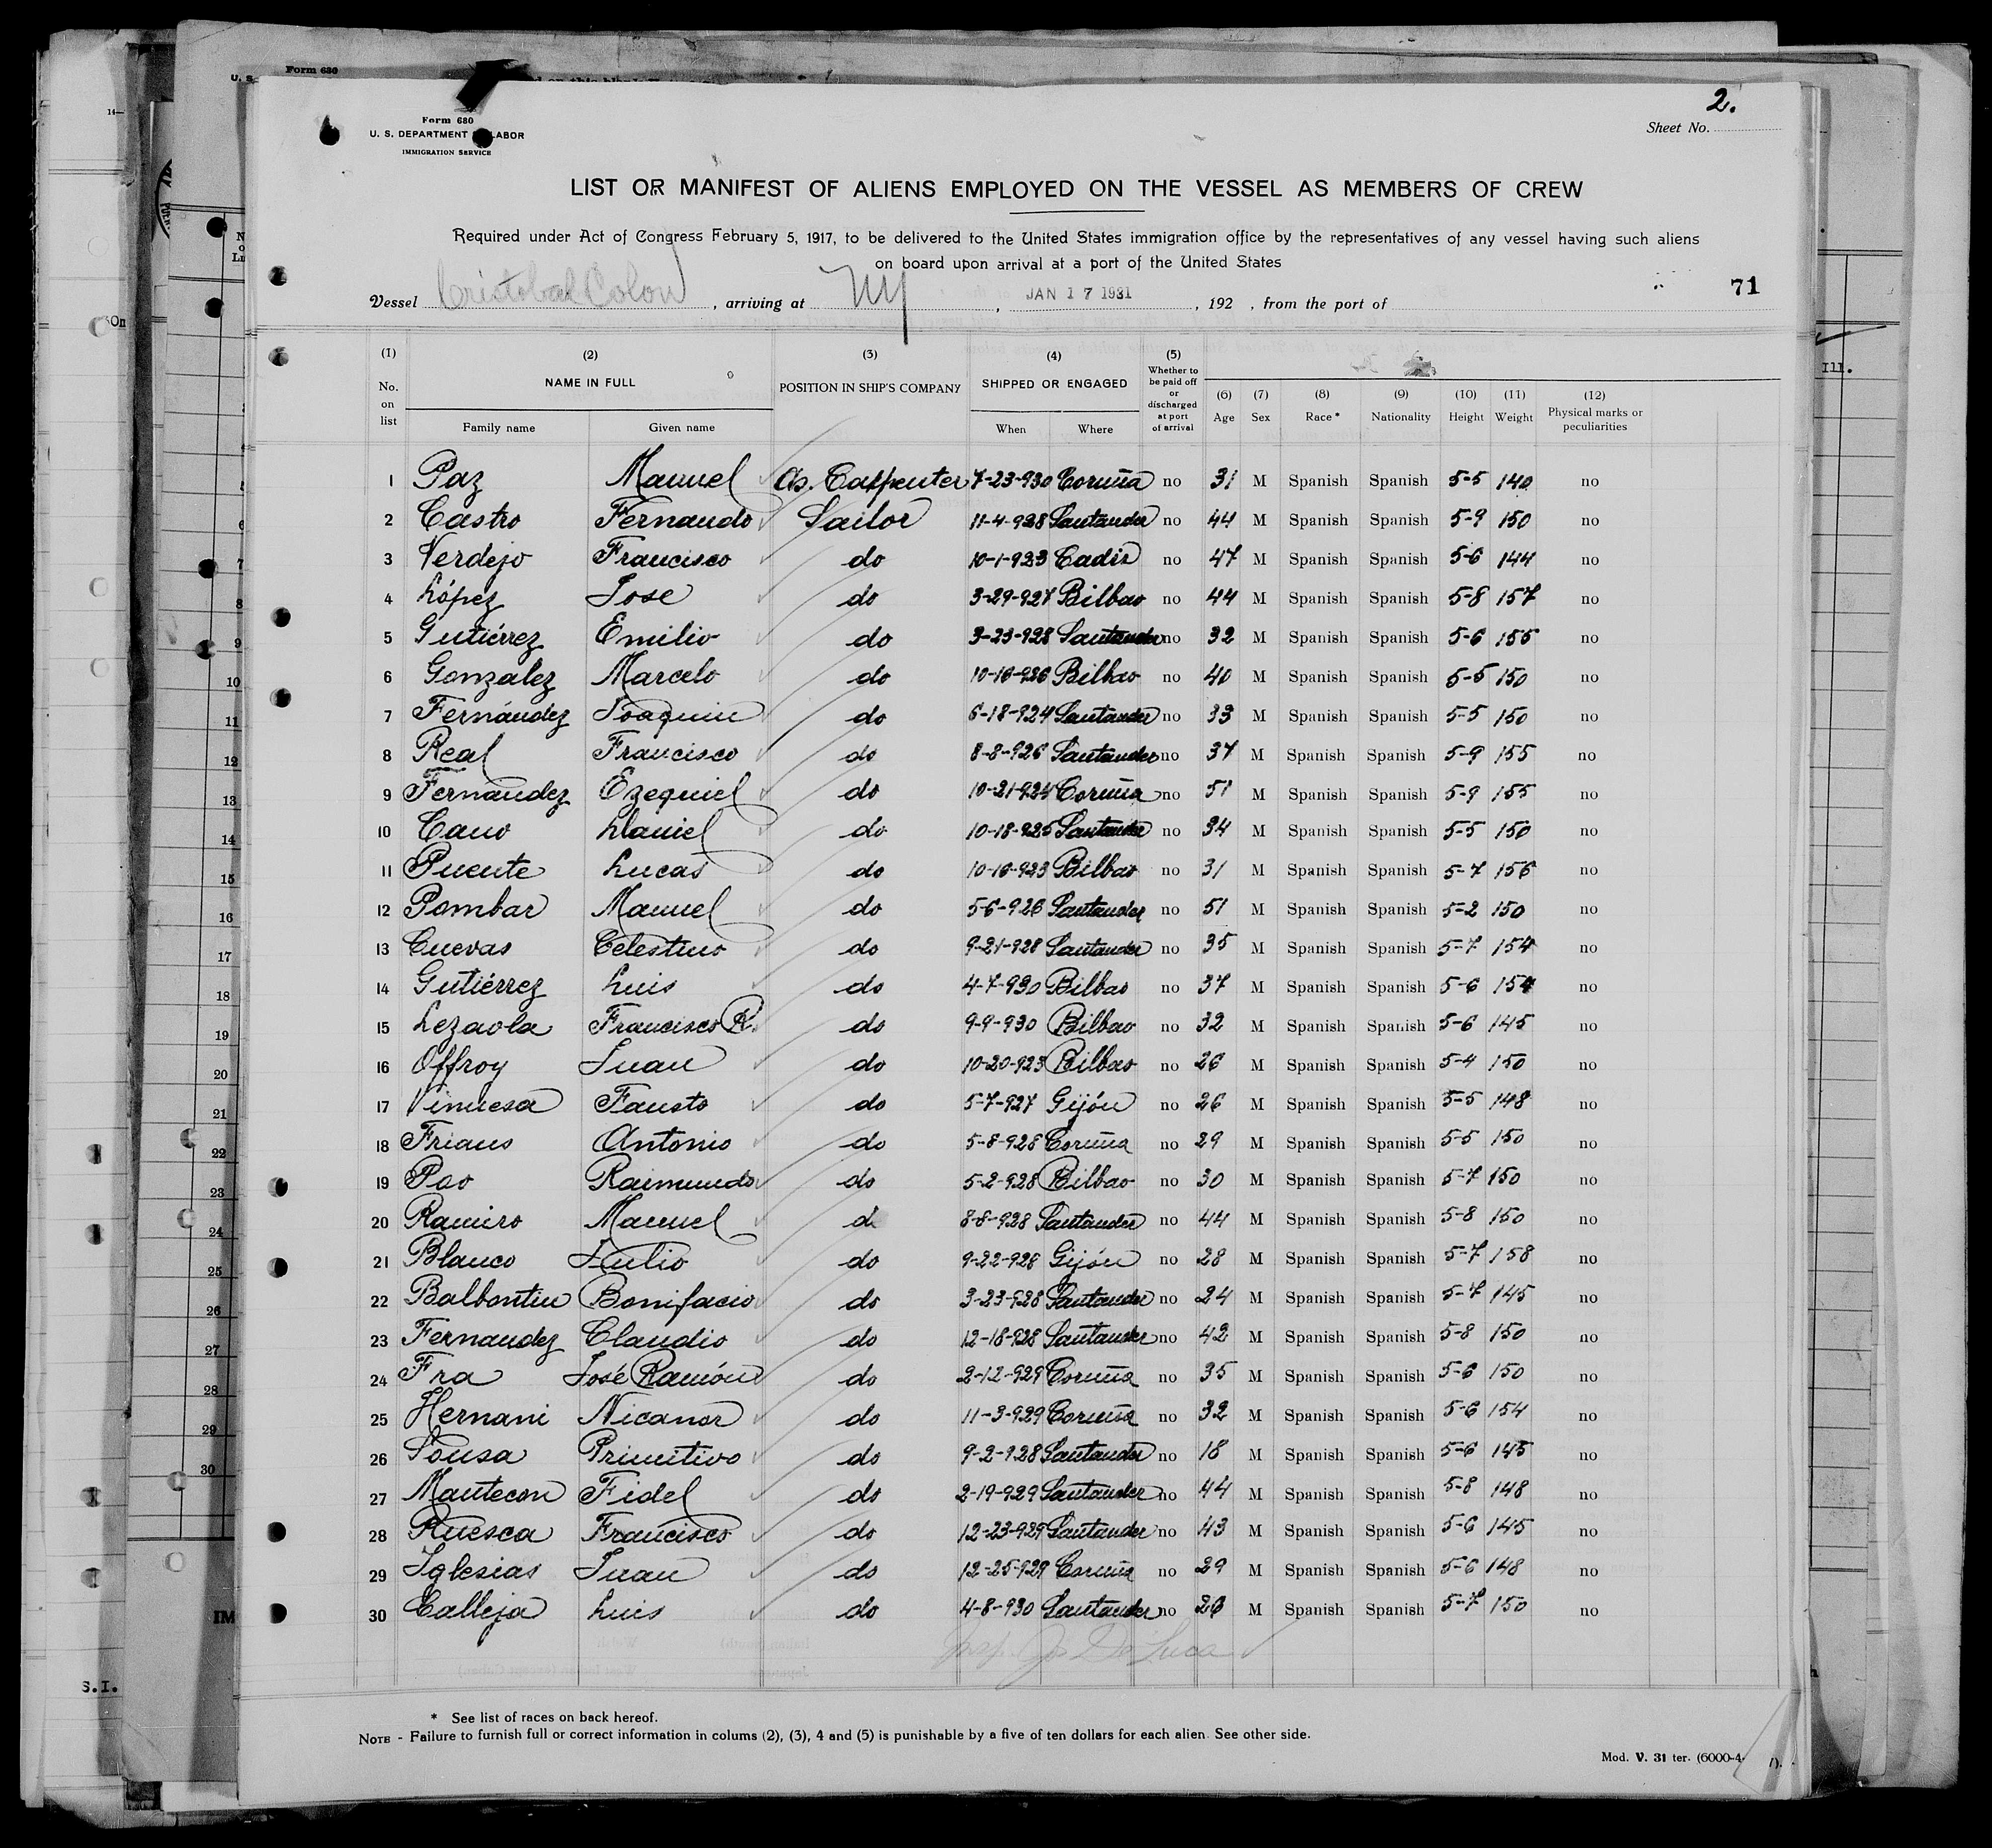 Form 680
U. S.
Form 680
U. S. DEPARTMENT LABOR
IMMIGRATION SERVICE
2.
Sheet No.
LIST OR MANIFEST OF ALIENS EMPLOYED ON THE VESSEL AS MEMBERS OF CREW
Required under Act of Congress February 5, 1917, to be delivered to the United States immigration office by the representatives of any vessel having such aliens
on board upon arrival at a port of the United States
71
Vessel Cristobal Colon, arriving at NY, JAN 17 1931, 192 , from the port of
(1) No. on list (2) NAME IN FULL (3) POSITION IN SHIP'S COMPANY (4) SHIPPED OR ENGAGED (5) Whether to be paid off or discharged at port of arrival (6) Age (7) Sex (8) Race* (9) Nationality (10) Height (11) Weight (12) Physical marks or peculiarities
Family name Given name When Where
1 Paz Manuel As. Carpenter 7-23-930 Coruña no 31 M Spanish Spanish 5-5 140 no
2 Castro Fernando Sailor 11-4-928 Santander no 44 M Spanish Spanish 5-9 150 no
3 Verdejo Francisco do 10-1-923 Cadiz no 47 M Spanish Spanish 5-6 144 no
4 López Jose do 3-29-927 Bilbao no 44 M Spanish Spanish 5-8 157 no
5 Gutiérrez Emilio do 3-23-928 Santander no 32 M Spanish Spanish 5-6 155 no
6 Gonzalez Marcelo do 10-16-926 Bilbao no 40 M Spanish Spanish 5-5 150 no
7 Fernández Joaquin do 6-18-924 Santander no 33 M Spanish Spanish 5-5 150 no
8 Real Francisco do 8-8-926 Santander no 37 M Spanish Spanish 5-9 155 no
9 Fernandez Ezequiel do 10-21-924 Coruña no 51 M Spanish Spanish 5-9 155 no
10 Cano Daniel do 10-18-925 Santander no 34 M Spanish Spanish 5-5 150 no
11 Puente Lucas do 10-16-923 Bilbao no 31 M Spanish Spanish 5-7 156 no
12 Pombar Manuel do 5-6-926 Santander no 51 M Spanish Spanish 5-2 150 no
13 Cuevas Celestino do 9-21-928 Santander no 35 M Spanish Spanish 5-7 154 no
14 Gutiérrez Luis do 4-7-930 Bilbao no 37 M Spanish Spanish 5-6 154 no
15 Lezaola Francisco R. do 9-9-930 Bilbao no 32 M Spanish Spanish 5-6 145 no
16 Offroy Juan do 10-20-923 Bilbao no 26 M Spanish Spanish 5-4 150 no
17 Vinuesa Fausto do 5-7-927 Gijón no 26 M Spanish Spanish 5-5 148 no
18 Frians Antonio do 5-8-928 Coruña no 29 M Spanish Spanish 5-5 150 no
19 Pao Raimundo do 5-2-928 Bilbao no 30 M Spanish Spanish 5-7 150 no
20 Ramiro Manuel d 8-8-928 Santander no 44 M Spanish Spanish 5-8 150 no
21 Blanco Julio do 9-22-928 Gijón no 28 M Spanish Spanish 5-7 158 no
22 Balbontin Bonifacio do 3-23-928 Santander no 24 M Spanish Spanish 5-7 145 no
23 Fernandez Claudio do 12-18-928 Santander no 42 M Spanish Spanish 5-8 150 no
24 Fra José Ramón do 2-12-929 Coruña no 35 M Spanish Spanish 5-6 150 no
25 Hernani Nicanor do 11-3-929 Coruña no 32 M Spanish Spanish 5-6 154 no
26 Sousa Primitivo do 9-2-928 Santander no 18 M Spanish Spanish 5-6 145 no
27 Mantecon Fidel do 2-19-929 Santander no 44 M Spanish Spanish 5-8 148 no
28 Ruesca Francisco do 12-23-929 Santander no 43 M Spanish Spanish 5-6 145 no
29 Iglesias Juan do 12-25-929 Coruña no 29 M Spanish Spanish 5-6 148 no
30 Calleja Luis do 4-8-930 Santander no 26 M Spanish Spanish 5-7 150 no
Insp. J. De Luca
* See list of races on back hereof.
NOTE - Failure to furnish full or correct information in colums (2), (3), 4 and (5) is punishable by a five of ten dollars for each alien. See other side.
Mod. V. 31 ter. (6000-4-
S.I.
Ill.